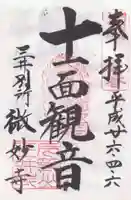 奉拝
平成廿六四六
十一面観音
三井別所
微妙寺